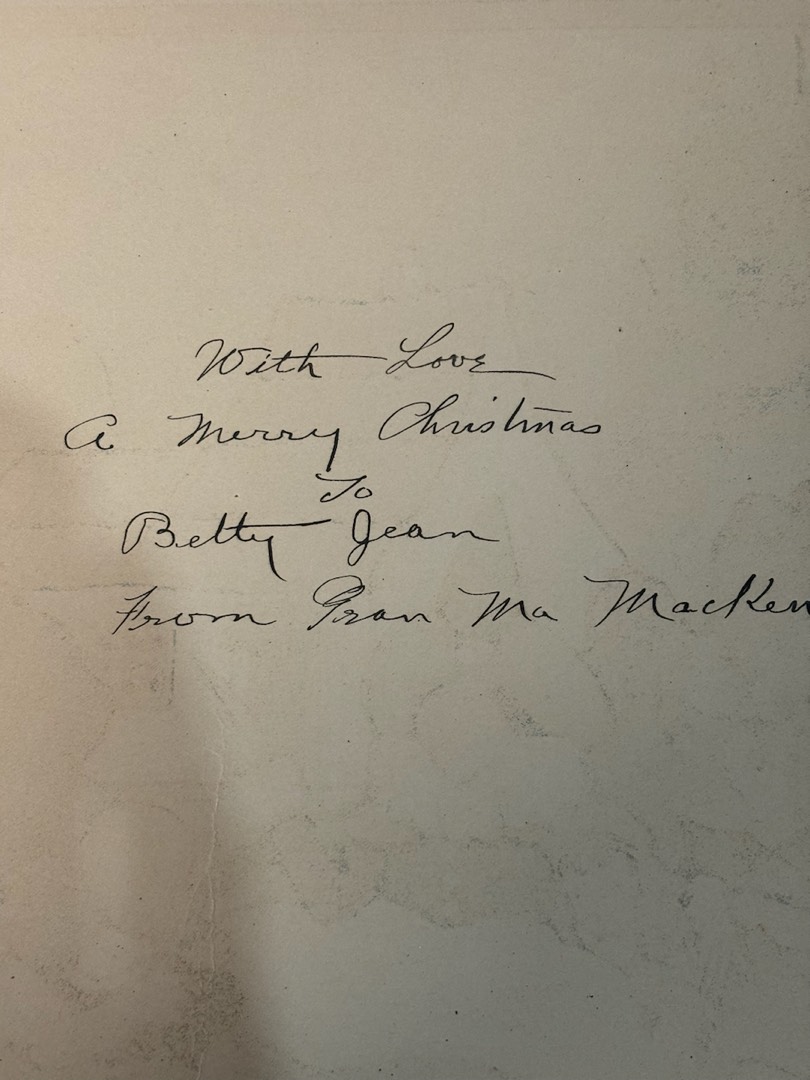 With Love
A Merry Christmas
To
Betty Jean
From Gran Ma MacKen